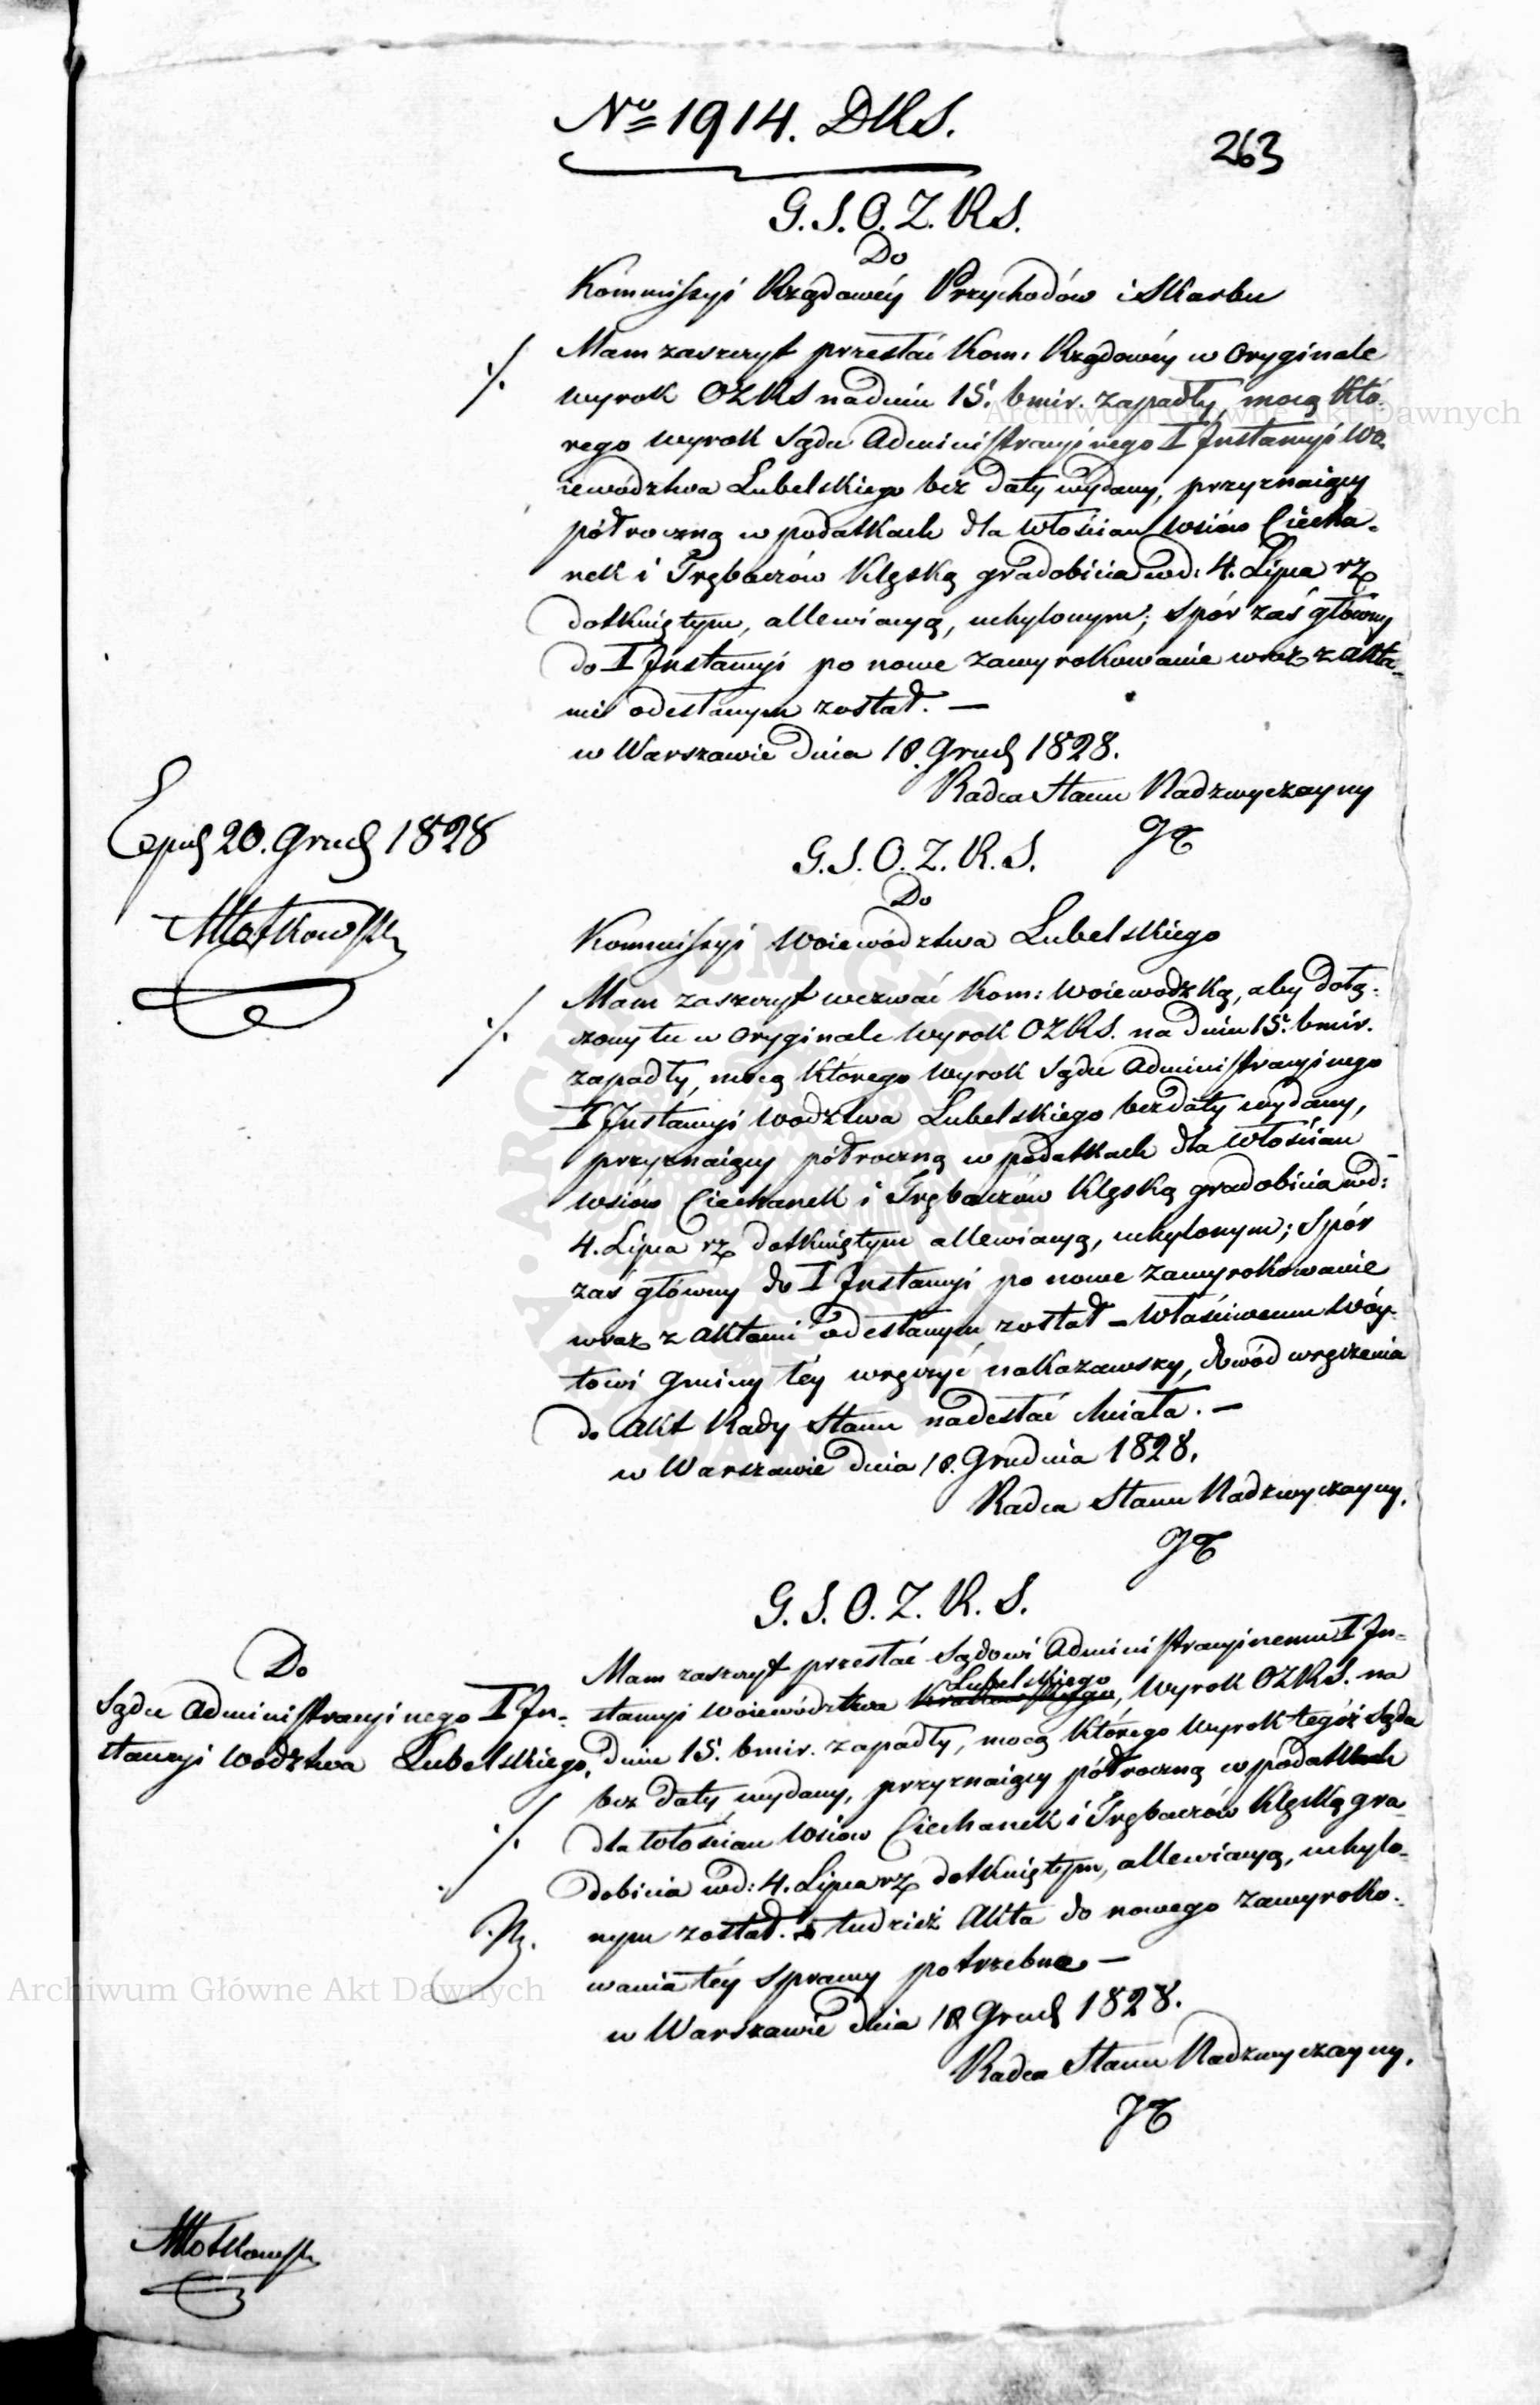 No 1914. DRS.
263
G. S. O. Z. R S.
Do
Kommissyi Rządowéy Przychodów i Skarbu
Mam zaszczyt przesłać Kom: Rządowéy w oryginale
wyrok OZRS na dniu 15. bmir. zapadły, mocą któ-
rego wyrok Sądu Administracyinego I Instancyi Wo-
iewództwa Lubelskiego bez daty wydany, przyznaiący
półroczną w podatkach dla Włościan Wsiów Ciecha-
nek i Trębaczów klęską gradobicia wd: 4. Lipca rz
dotkniętym, allewiacyą, uchylonym; spór zaś główny
do I Instancyi po nowe zawyrokowanie wraz z akta-
mi odesłanym został. —
w Warszawie dnia 18. Grud 1828.
Radca Stanu Nadzwyczayny
Exped 20. Grud 1828
Młotkowski
G. S. O. Z. R. S.
Do
Kommissyi Woiewództwa Lubelskiego
Mam zaszczyt wezwać Kom: Woiewodzką, aby dołą-
czony tu w oryginale wyrok OZRS. na dniu 15. bmir.
zapadły, mocą którego wyrok Sądu Administracyinego
I Instancyi Wodztwa Lubelskiego bez daty wydany,
przyznaiący półroczną w podatkach dla Włościan
Wsiów Ciechanek i Trębaczów klęską gradobicia wd:
4. Lipca rz dotkniętym allewiacyą, uchylonym; spór
zaś główny do I Instancyi po nowe zawyrokowanie
wraz z aktami odesłanym został — właściwemu Wóy-
towi Gminy téy wręczyć nakazawszy, dowód wręczenia
do akt Rady Stanu nadesłać chciała. —
w Warszawie dnia 18. Grudnia 1828.
Radca Stanu Nadzwyczayny.
G. S. O. Z. R. S.
Do
Sądu Administracyinego I In-
stancyi Wodztwa Lubelskiego.
Mam zaszczyt przesłać Sądowi Administracyinemu I In-
Lubelskiego
stancyi Woiewództwa Krakowskiego, wyrok OZRS. na
dniu 15. bmir. zapadły, mocą którego wyrok tegóż Sądu
bez daty wydany, przyznaiący półroczną w podatkach
dla Włościan Wsiów Ciechanek i Trębaczów klęską gra-
dobicia wd: 4. Lipca rz dotkniętym, allewiacyą, uchylo-
nym został. tudzież Akta do nowego zawyroko-
wania téy sprawy potrzebne —
w Warszawie dnia 18 Grud 1828.
Radca Stanu Nadzwyczayny.
Młotkowski
Archiwum Główne Akt Dawnych
Archiwum Główne Akt Dawnych